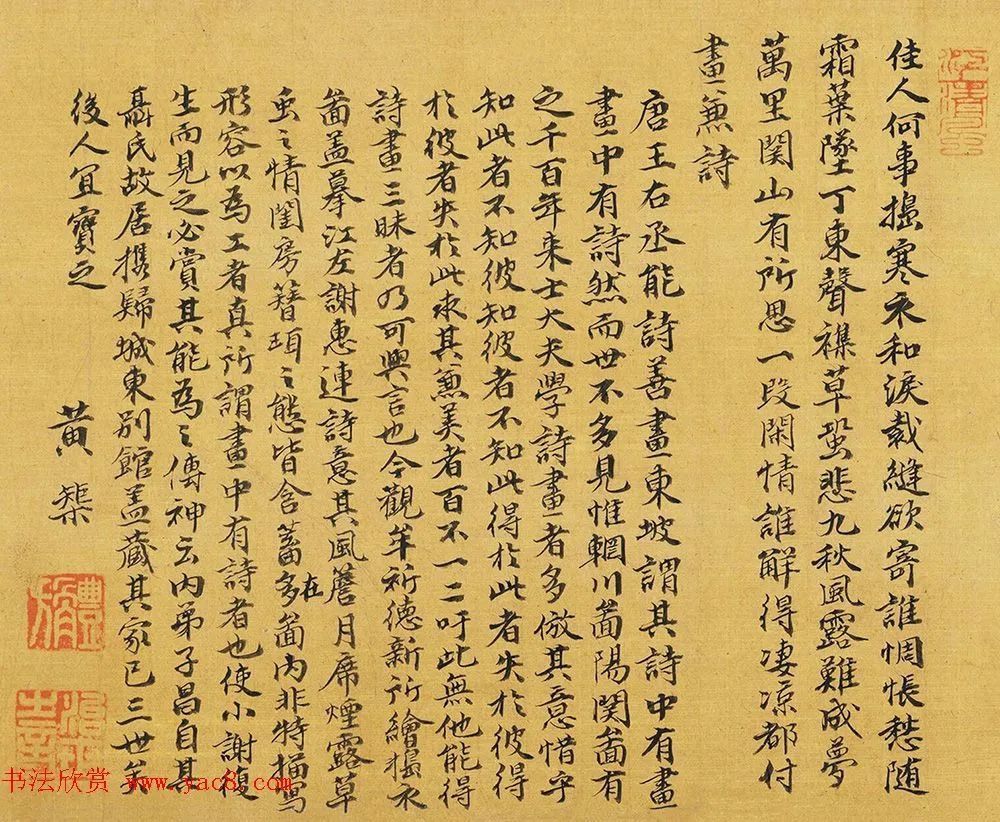 佳人何事搗寒衣和淚裁縫欲寄誰惆悵愁随
霜葉墜丁東聲襍草蛩悲九秋風露難成夢
萬里関山有所思一段閑情誰解得凄凉都付
畫蕪詩
唐王右丞能詩善畫東坡謂其詩中有畫
畫中有詩然而世不多見惟輞川啚陽関啚有
之千百年来士大夫學詩畫者多倣其意惜乎
知此者不知彼知彼者不知此得扵此者失扵彼得
扵彼者失扵此求其蕪美者百不一二吁此無他能得
詩畫三昧者乃可與言也今觀牟祈德新所繪搗衣
啚盖摹江左謝惠連詩意其風簷月席煙露草
虫之情閨房簪珥之態皆含蓄多在啚内非特描寫
形容以為工者真所謂畫中有詩者也使小謝復
生而見之必賞其能為之傳神云内弟子昌自其
聶氏故居携歸城東别館盖藏其家已三世矣
後人宜寶之
黄槼
书法欣赏 www.yac8.com